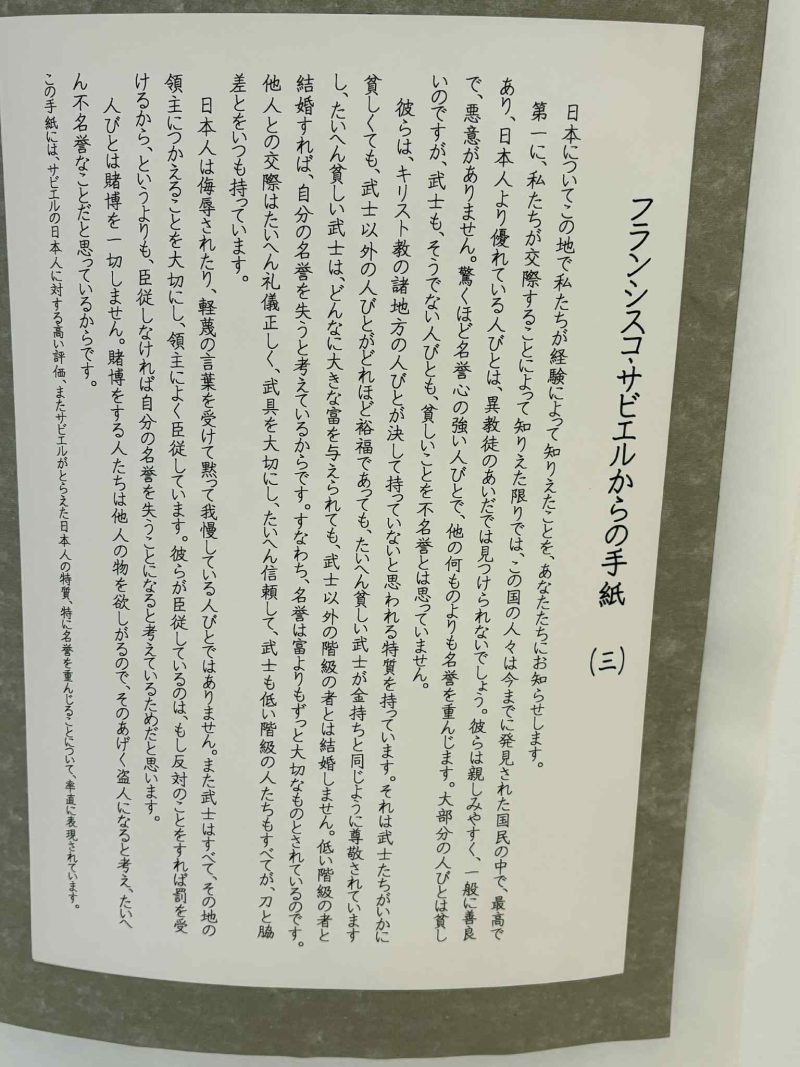 フランシスコ・サビエルからの手紙 (三)
日本についてこの地で私たちが経験によって知りえたことを、あなたたちにお知らせします。
第一に、私たちが交際することによって知りえた限りでは、この国の人々は今までに発見された国民の中で、最高で
あり、日本人より優れている人びとは、異教徒のあいだでは見つけられないでしょう。彼らは親しみやすく、一般に善良
で、悪意がありません。驚くほど名誉心の強い人びとで、他の何ものよりも名誉を重んじます。大部分の人びとは貧し
いのですが、武士も、そうでない人びとも、貧しいことを不名誉とは思っていません。
彼らは、キリスト教の諸地方の人びとが決して持っていないと思われる特質を持っています。それは武士たちがいかに
貧しくても、武士以外の人びとがどれほど裕福であっても、たいへん貧しい武士が金持ちと同じように尊敬されています
し、たいへん貧しい武士は、どんなに大きな富を与えられても、武士以外の階級の者とは結婚しません。低い階級の者と
結婚すれば、自分の名誉を失うと考えているからです。すなわち、名誉は富よりもずっと大切なものとされているのです。
他人との交際はたいへん礼儀正しく、武具を大切にし、たいへん信頼して、武士も低い階級の人たちもすべてが、刀と脇
差とをいつも持っています。
日本人は侮辱されたり、軽蔑の言葉を受けて黙って我慢している人びとではありません。また武士はすべて、その地の
領主につかえることを大切にし、領主によく臣従しています。彼らが臣従しているのは、もし反対のことをすれば罰を受
けるから、というよりも、臣従しなければ自分の名誉を失うことになると考えているためだと思います。
人びとは賭博を一切しません。賭博をする人たちは他人の物を欲しがるので、そのあげく盗人になると考え、たいへ
ん不名誉なことだと思っているからです。
この手紙には、サビエルの日本人に対する高い評価、またサビエルがとらえた日本人の特質、特に名誉を重んじることについて、率直に表現されています。